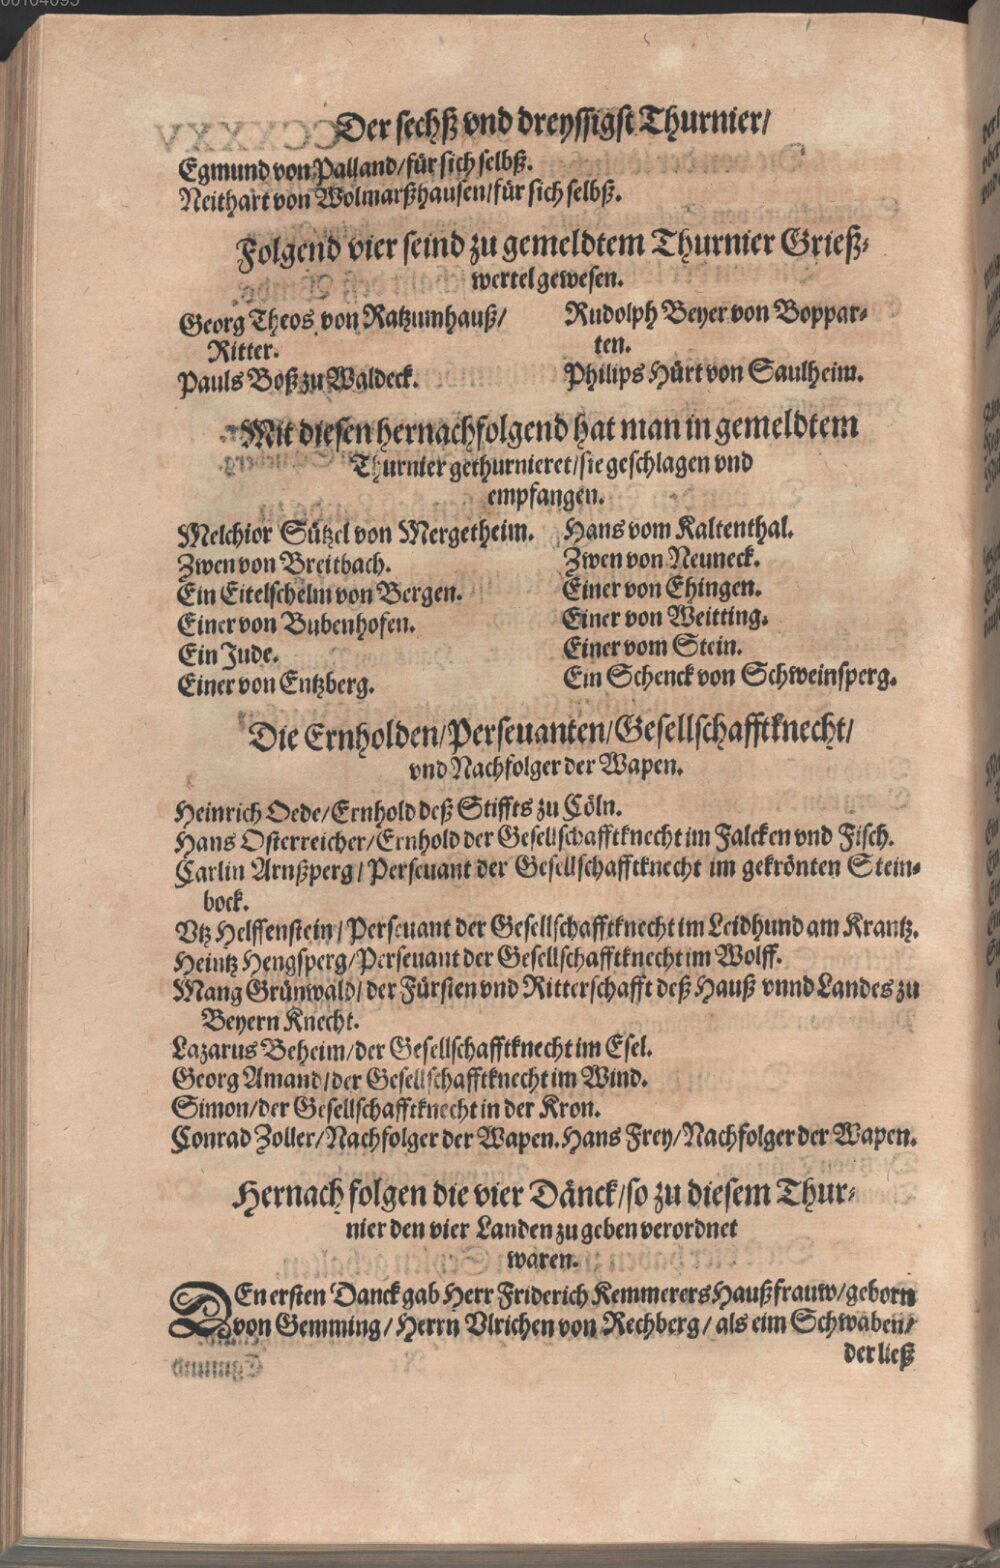 Der sechß vnd dreyssigst Thurnier/
Egmund von Palland/für sich selbß.
Neithart von Wolmarßhausen/für sich selbß.
Folgend vier seind zu gemeldtem Thurnier Grieß-
wertel gewesen.
Georg Theos von Ratzumhauß/
Ritter.
Pauls Boß zu Waldeck.
Rudolph Beyer von Boppar-
ten.
Philips Hürt von Saulheim.
Mit diesen hernachfolgend hat man in gemeldtem
Thurnier gethurnieret/sie geschlagen vnd
empfangen.
Melchior Sützel von Mergetheim.
Zwen von Breitbach.
Ein Eitelschelm von Bergen.
Einer von Bubenhofen.
Ein Jude.
Einer von Entzberg.
Hans vom Kaltenthal.
Zwen von Neuneck.
Einer von Ehingen.
Einer von Weitting.
Einer vom Stein.
Ein Schenck von Schweinsperg.
Die Ernholden/Perseuanten/Gesellschafftknecht/
vnd Nachfolger der Wapen.
Heinrich Oede/Ernhold deß Stiffts zu Cöln.
Hans Osterreicher/Ernhold der Gesellschafftknecht im Falcken vnd Fisch.
Carlin Arnßperg/Perseuant der Gesellschafftknecht im gekrönten Stein-
bock.
Vtz Helffenstein/Perseuant der Gesellschafftknecht im Leidhund am Krantz.
Heintz Hengsperg/Perseuant der Gesellschafftknecht im Wolff.
Mang Grünwald/der Fürsten vnd Ritterschafft deß Hauß vnnd Landes zu
Beyern Knecht.
Lazarus Beheim/der Gesellschafftknecht im Esel.
Georg Amand/der Gesellschafftknecht im Wind.
Simon/der Gesellschafftknecht in der Kron.
Conrad Zoller/Nachfolger der Wapen. Hans Frey/Nachfolger der Wapen.
Hernach folgen die vier Dänck/so zu diesem Thur-
nier den vier Landen zu geben verordnet
waren.
DEn ersten Danck gab Herr Friderich Kemmerers Haußfrauw/geborn
von Gemming/Herrn Vlrichen von Rechberg/als eim Schwaben/
der ließ